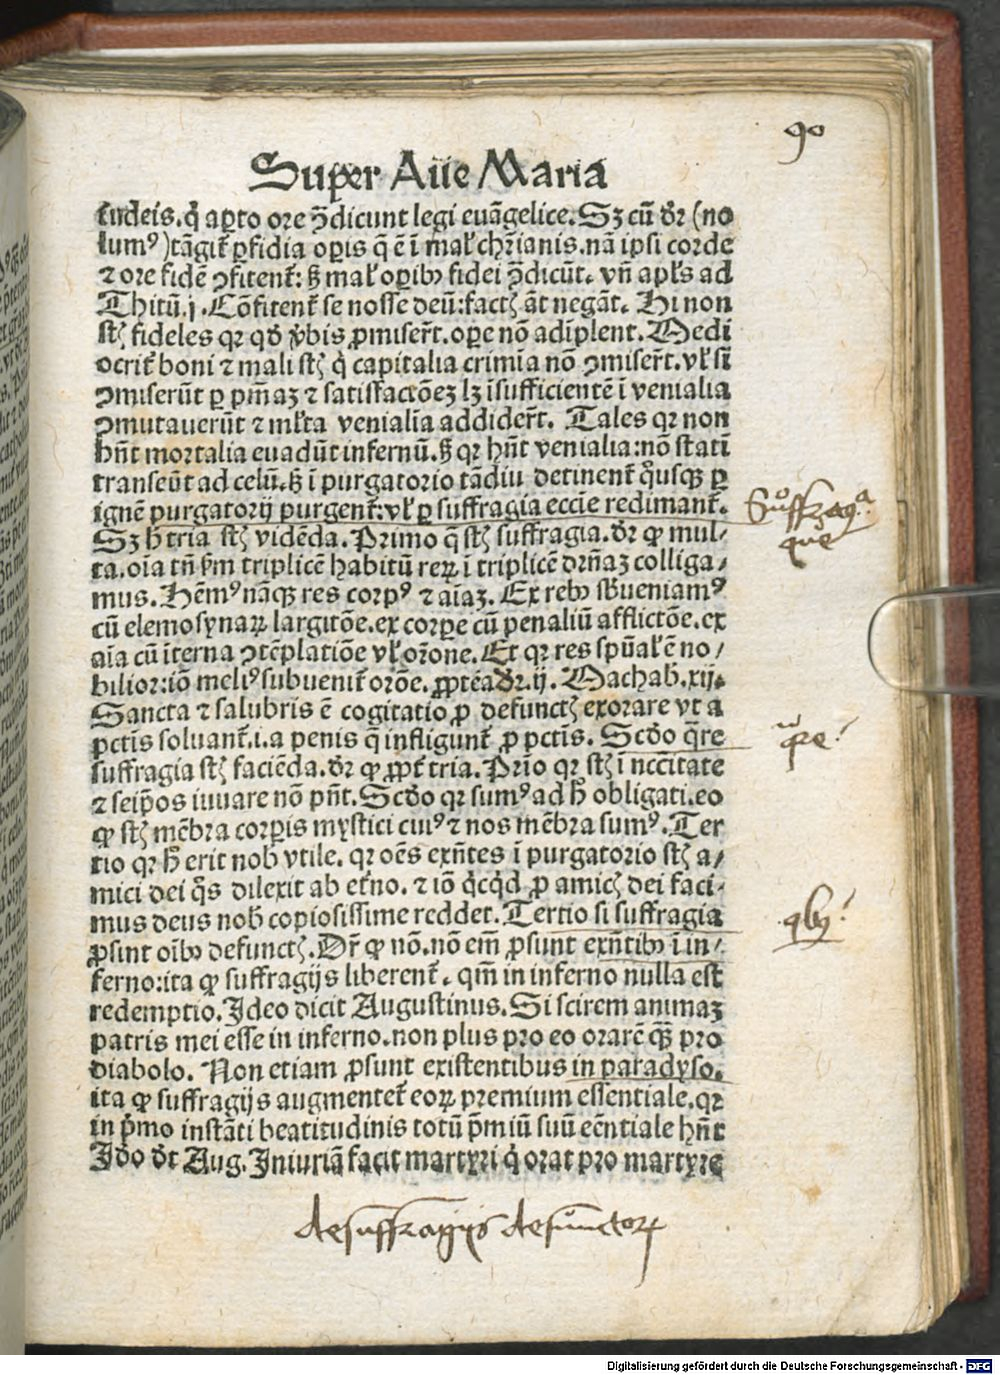 90
Super Aue Maria
iudeis.q̇ aꝑto ore ꝯ̄dicunt legi euāgelice.Sꝫ cū dr̄ (no
lumꝰ)tāgit᷑ ꝑfidia oꝑis q̄ ē ī mal̕ chr̄ianis.nā ip̄i corde
⁊ ore fidē ꝯfitent᷑: sꝫ mal̕ oꝑibꝰ fidei ꝯ̄dicūt. vn̄ apl̕s ad
Thitū.j.Cōfitent᷑ se nosse deū:factꝭ āt negāt. Hi non
st̄ fideles qꝛ qd̄ v̄bis ꝓmiser̄t.oꝑe nō adīplent.Medī
ocrit᷑ boni ⁊ mali st̄ q̇ capitalia crimīa nō ꝯmiser̄t.vl̕ sī
ꝯmiserūt ꝑ pn̄iaꝫ ⁊ satisfactōeꝫ lꝫ īsufficientē ī venialia
ꝯmutauerūt ⁊ ml̕ta venialīa addider̄t. Tales qꝛ non
hn̄t mortalia euadūt infernū.sꝫ qꝛ hn̄t venialia:nō statī
transeūt ad celū.sꝫ ī purgatorio tādiu detinent᷑ q̊usqꝫ ꝑ
ignē purgatorij purgent᷑:vl̕ ꝑ suffragia eccīe redimant᷑.
Sꝫ h̄ tria st̄ vidēda.Primo q̄ st̄ suffragia.dr̄ ꝙ mul-
ta.oīa tn̄ ẜm triplicē habitū reꝝ ī triplicē dr̄n̄aꝫ colliga/
mus.Hēmꝰ nāqꝫ res corpꝰ ⁊ aīaꝫ.Ex rebꝰ sb̄ueniamꝰ
cū elemosynaꝝ largitōe.ex corꝑe cū penaliū afflictōe.ex
aīa cū īterna ꝯtēplatiōe vl̕ or̄one.Et qꝛ res spūal̕ ē no/
bilior:iō meliꝰ subuenit᷑ orōe.ꝓpt̄ea dr̄.ij.Machab̄.xij.
Sancta ⁊ salubris ē cogitatio ꝓ defunctꝭ exorare vt a
pctīs soluant᷑.i.a penis q̄ infligunt᷑ ꝓ pctīs. Scd̄o q̄re
suffragia st̄ faciēda.dr̄ ꝙ ꝓpt᷑ tria.Prīo qꝛ st̄ ī nccītate
⁊ seip̄os iuuare nō pn̄t.Scd̄o qꝛ sumꝰ ad h̄ obligati.eo
ꝙ st̄ mēbra corꝑis mystici cuiꝰ ⁊ nos mēbra sumꝰ.Ter
tio qꝛ h̄ erit nob̄ vtile. qꝛ oēs exn̄tes ī purgatorio st̄ a/
mici dei q̊s dilexit ab et᷑no. ⁊ iō q̇cq̇d ꝓ amicꝭ dei faci-
mus deus nob̄ copiosissime reddet.Tertio si suffragia
ꝓsint oībꝰ defunctꝭ.Dr̄ ꝙ nō.nō em̄ ꝓsunt exn̄tibꝰ ī in/
ferno:ita ꝙ suffragijs liberent᷑. qm̄ in inferno nulla est
redemptio.Ideo dicit Augustinus.Si scirem animaꝫ
patris mei esse in inferno.non plus pro eo orarē qꝫ̄ pro
diabolo. Non etiam ꝓsunt existentibus in paradyso.
ita ꝙ suffragijs augmentet᷑ eoꝝ premium essentiale.qꝛ
in p̄mo instāti beatitudinis totū p̄miū suū eēntiale hn̄t
Ido dt̄ Aug.Iniuriā facit martyri q̇ orat pro martyre
Suffragia
que
quare
quibus
de suffragijs defunctoꝝ
Digitalisierung gefördert durch die Deutsche Forschungsgemeinschaft - DFG